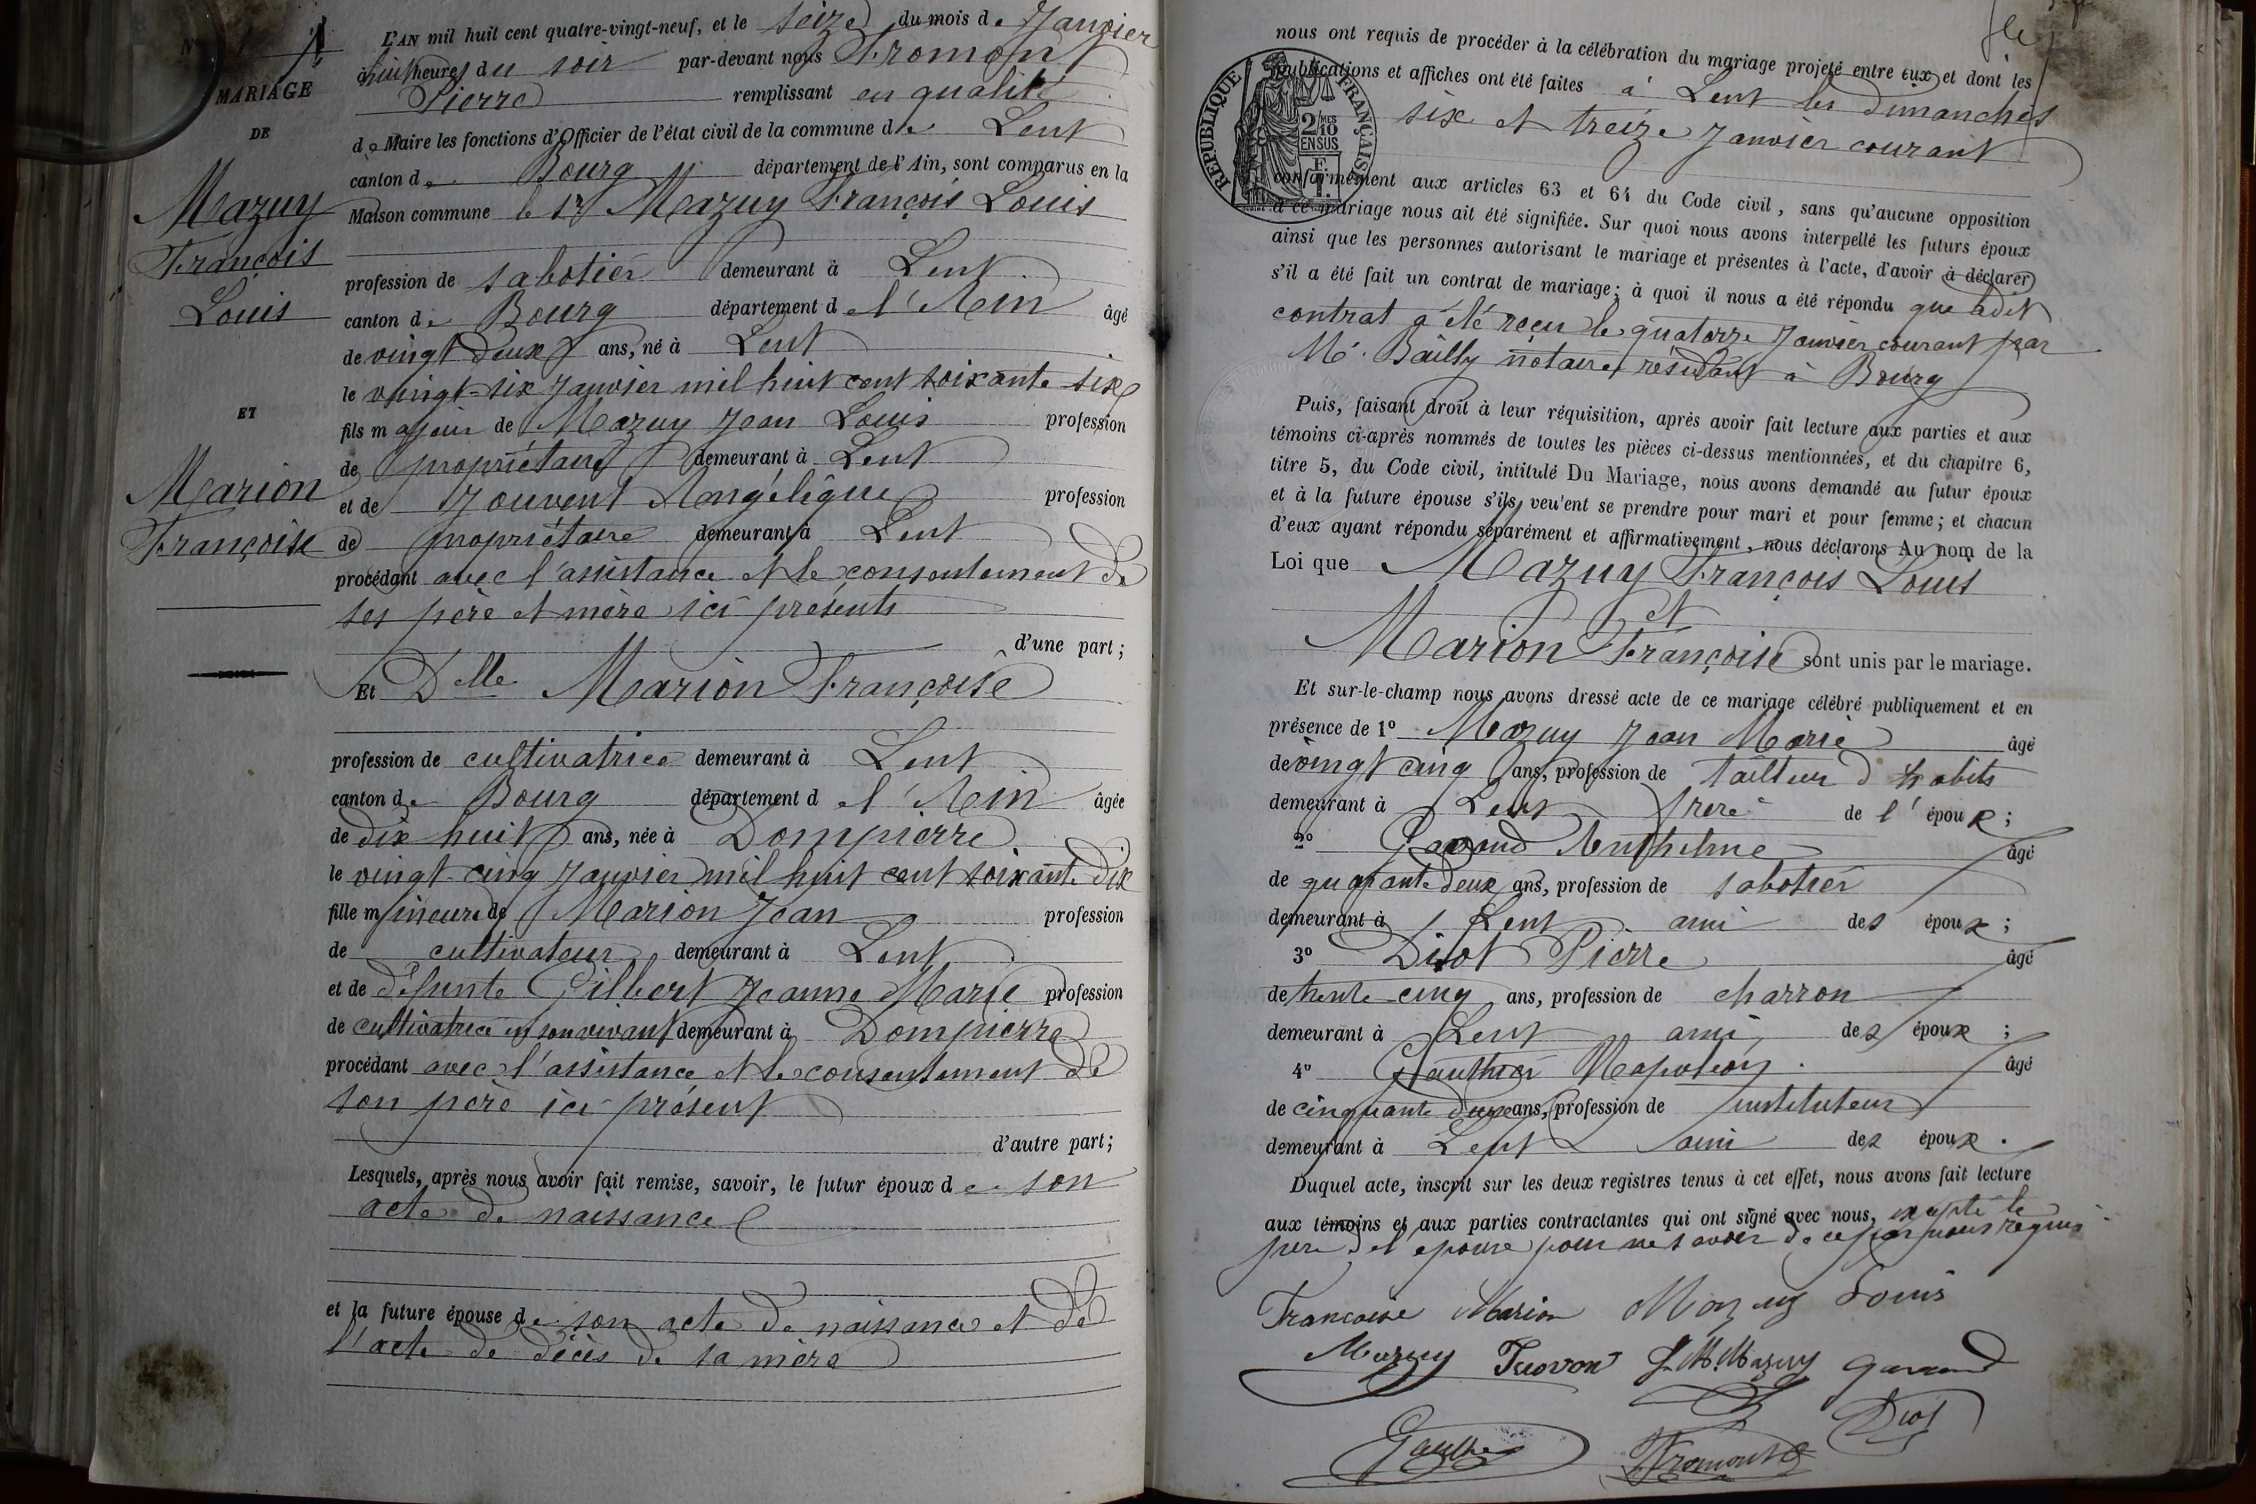 N° 1
MARIAGE
DE
Mazuy
François
Louis
ET
Marion
Françoise
L'AN mil huit cent quatre-vingt-neuf, et le seize du mois de Janvier
à huit heures du soir par-devant nous Fromont
Pierre remplissant en qualité
de Maire les fonctions d'Officier de l'état civil de la commune de Lent
canton de Bourg département de l'Ain, sont comparus en la
Maison commune le Sr Mazuy François Louis
profession de sabotier demeurant à Lent
canton de Bourg département de l'Ain âgé
de vingt deux ans, né à Lent
le vingt-six Janvier mil huit cent soixante six
fils majeur de Mazuy Jean Louis profession
de propriétaire demeurant à Lent
et de Angélique profession
de propriétaire demeurant à Lent
procédant avec l'assistance et le consentement de
ses père et mère ici présents
d'une part;
Et Delle Marion Françoise
profession de cultivatrice demeurant à Lent
canton de Bourg département de l'Ain âgée
de dix huit ans, née à Dompierre
le vingt cinq Janvier mil huit cent soixante dix
fille mineure de Marion Jean profession
de cultivateur demeurant à Lent
et de défunte Gilbert Jeanne Marie profession
de cultivatrice en son vivant demeurant à Dompierre
procédant avec l'assistance et le consentement de
son père ici présent
d'autre part;
Lesquels, après nous avoir fait remise, savoir, le futur époux de son
acte de naissance
et la future épouse de son acte de naissance et de
l'acte de décès de sa mère
nous ont requis de procéder à la célébration du mariage projeté entre eux et dont les
publications et affiches ont été faites à Lent les dimanches
six et treize Janvier courant
RÉPUBLIQUE FRANÇAISE
2/10 EN SUS
conformément aux articles 63 et 64 du Code civil, sans qu'aucune opposition
à ce mariage nous ait été signifiée. Sur quoi nous avons interpellé les futurs époux
ainsi que les personnes autorisant le mariage et présentes à l'acte, d'avoir à déclarer
s'il a été fait un contrat de mariage; à quoi il nous a été répondu que ledit
contrat a été reçu le quatorze Janvier courant par
Me Bailly notaire résidant à Bourg
Puis, faisant droit à leur réquisition, après avoir fait lecture aux parties et aux
témoins ci-après nommés de toutes les pièces ci-dessus mentionnées, et du chapitre 6,
titre 5, du Code civil, intitulé Du Mariage, nous avons demandé au futur époux
et à la future épouse s'ils veu'ent se prendre pour mari et pour femme; et chacun
d'eux ayant répondu séparément et affirmativement, nous déclarons Au nom de la
Loi que Mazuy François Louis
et
Marion Françoise sont unis par le mariage.
Et sur-le-champ nous avons dressé acte de ce mariage célébré publiquement et en
présence de 1° Mazuy Jean Marie âgé
de vingt cinq ans, profession de tailleur d'habits
demeurant à Lent frère de l'époux;
2° Gavand Anthelme âgé
de quarante deux ans, profession de sabotier
demeurant à Lent ami des époux;
3° Diot Pierre âgé
de trente-cinq ans, profession de charron
demeurant à Lent ami des époux;
4° Gauthier Napoléon âgé
de cinquante deux ans, profession de instituteur
demeurant à Lent ami des époux.
Duquel acte, inscrit sur les deux registres tenus à cet effet, nous avons fait lecture
aux témoins et aux parties contractantes qui ont signé avec nous, excepté le
père de l'épouse pour ne savoir de ce par nous requis
Francoise Marion Mazuy Louis
Mazuy J. M. Mazuy Gavand
Gauthier Fromont Diot